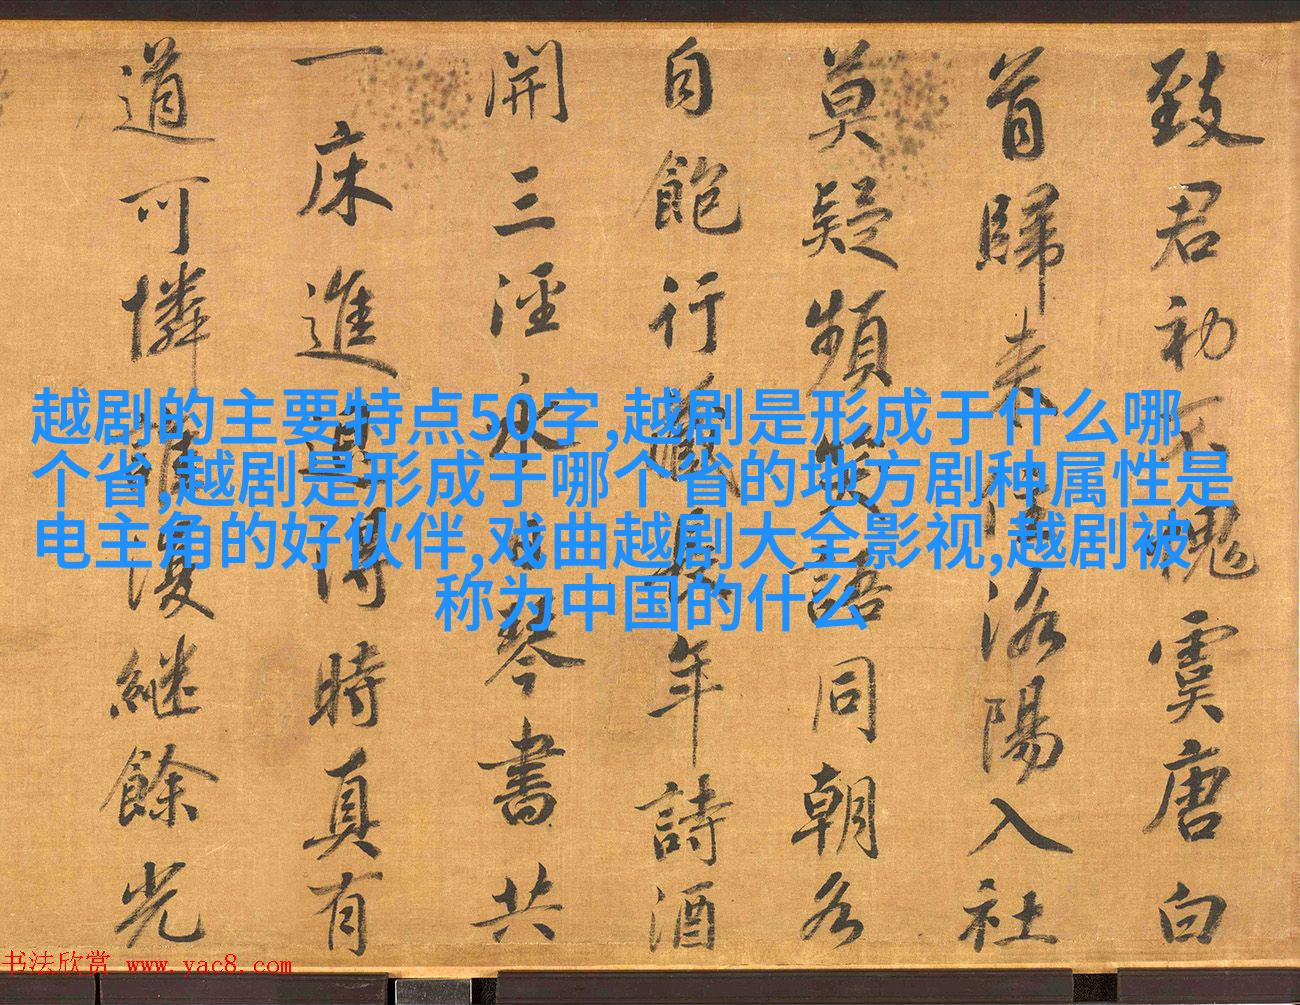 越剧的主要特点50字,越剧是形成于什么哪
个省,越剧是形成于哪个省的地方剧种属性是
电主角的好伙伴,戏曲越剧大全影视,越剧被
称为中国的什么
致君初不愧虞唐白
首歸来洛陽入社
莫疑頻笑語同朝各
自飽行藏年詩酒
開三涇永日琴書共
一床進退得時真有
道可憐誰復繼餘光
书法欣赏 www.yac8.com